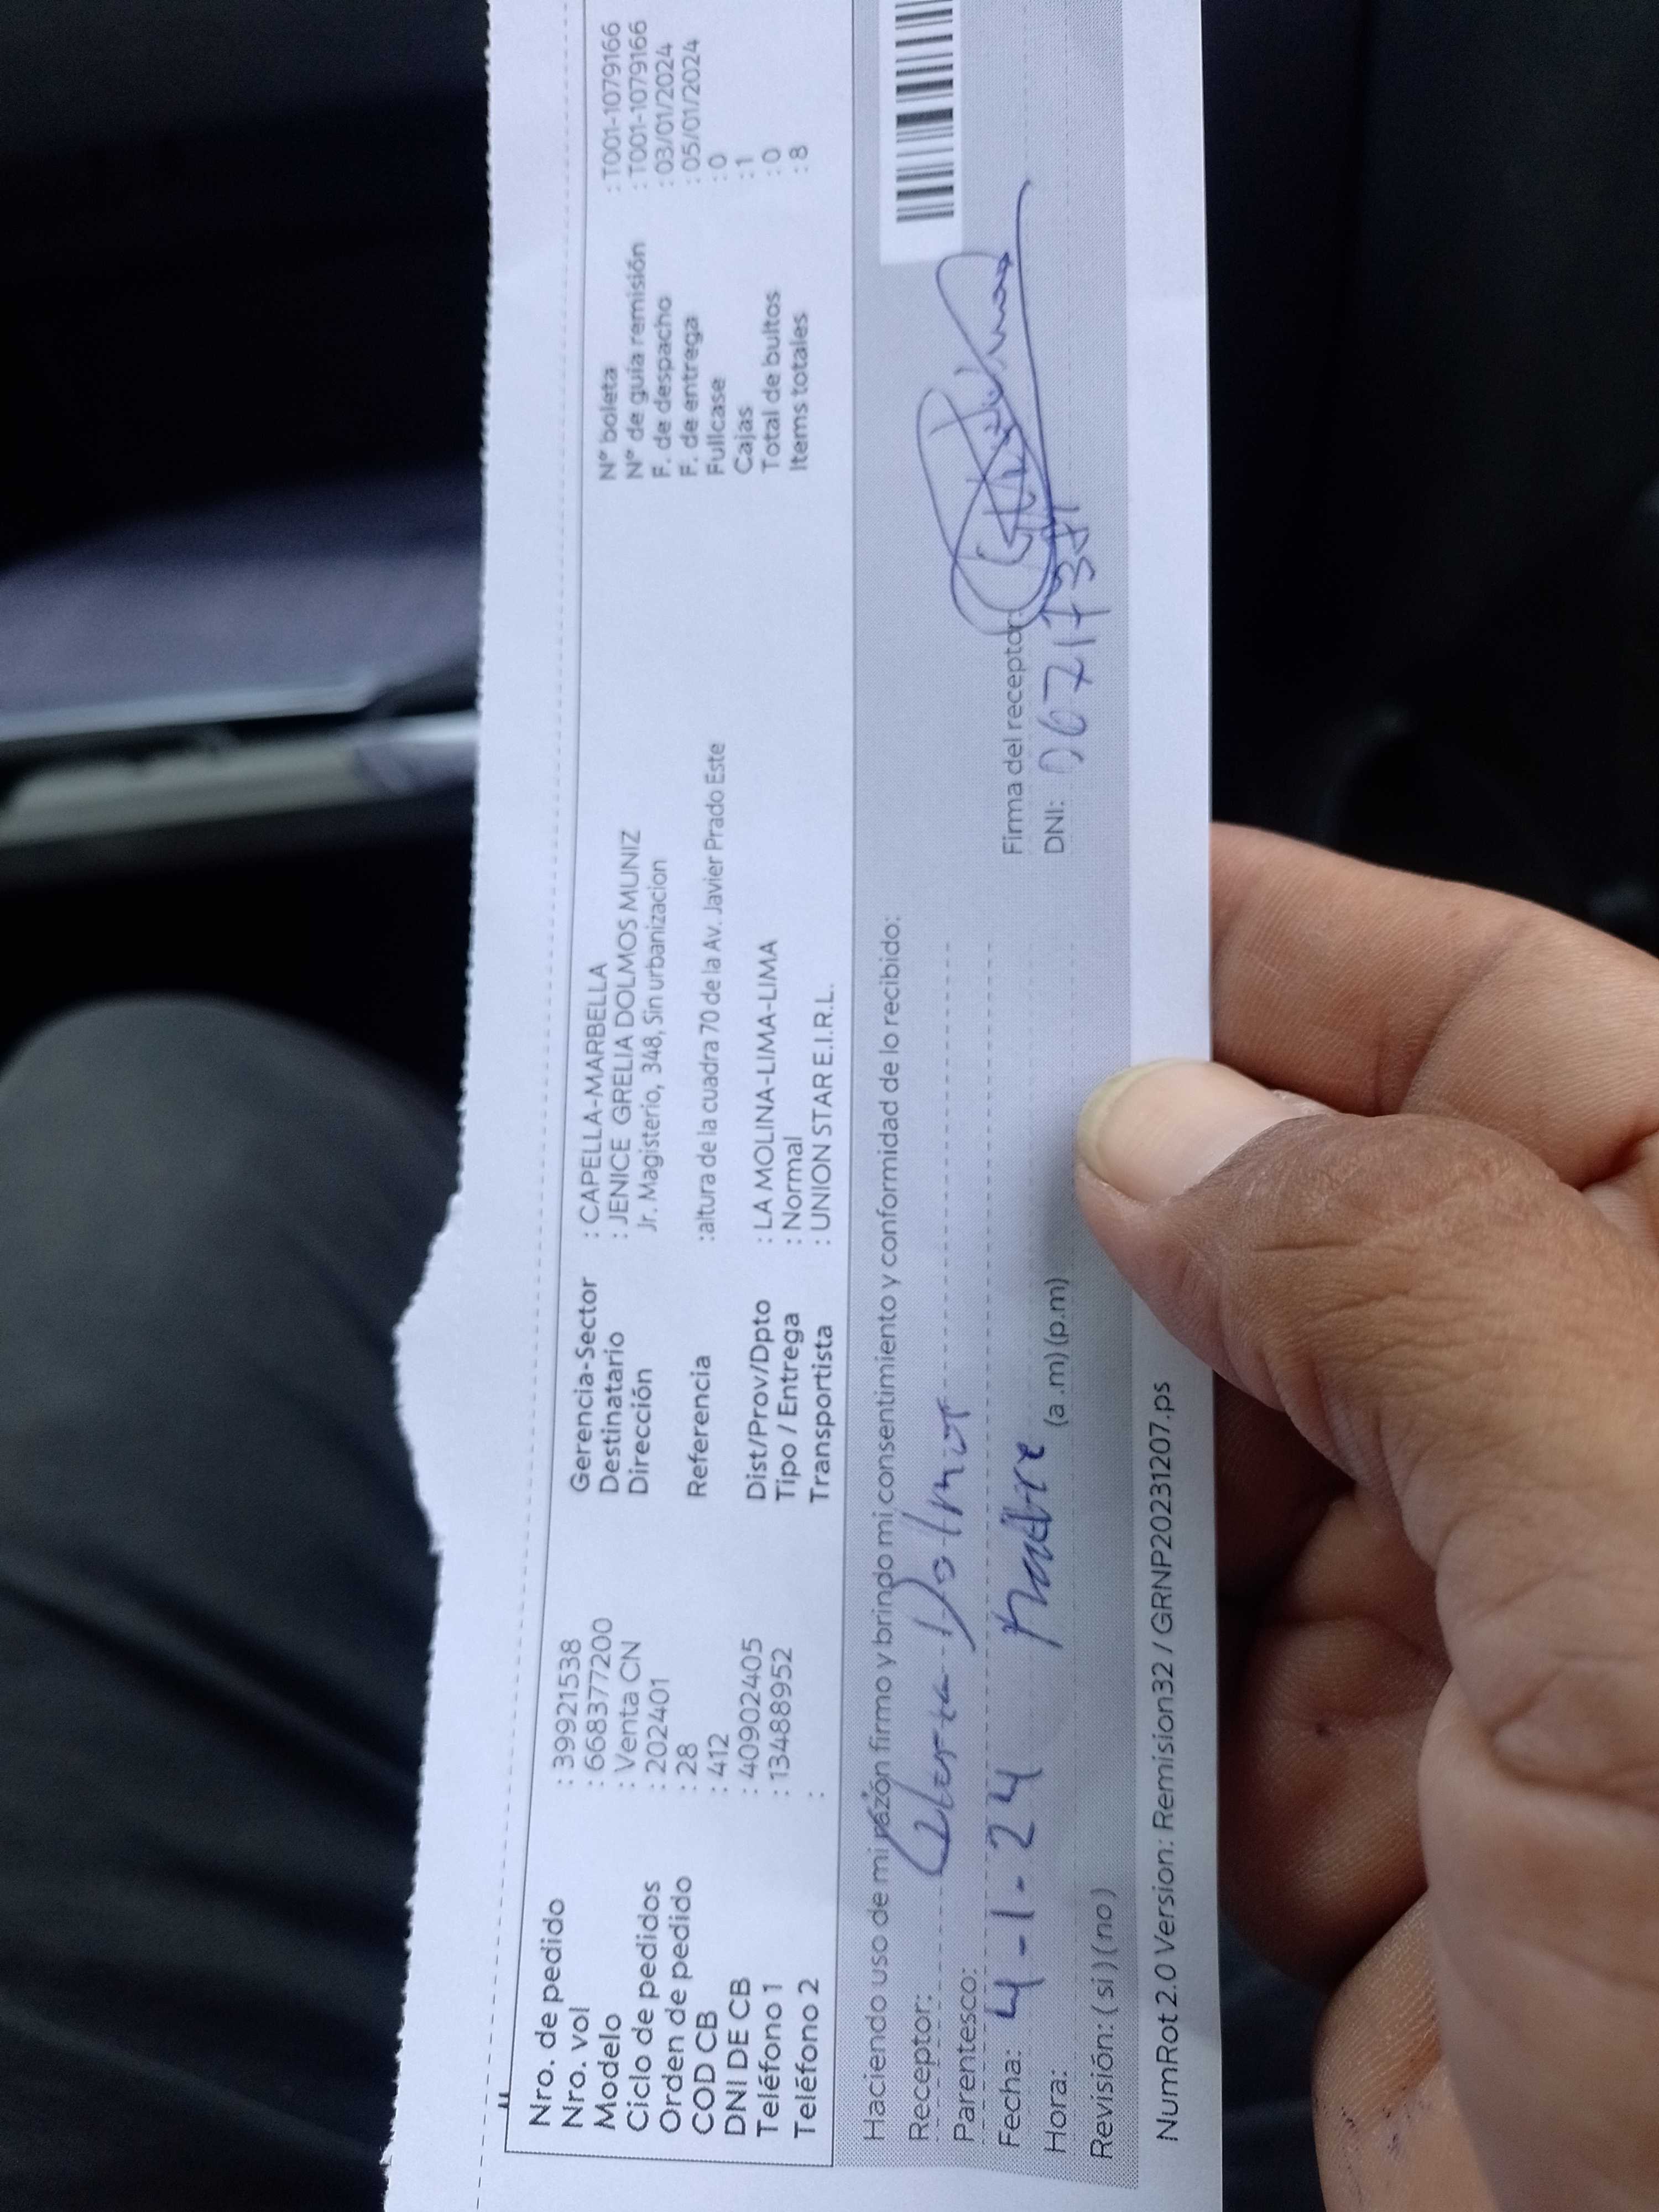 Nro. de pedido : 39921538
Nro. vol : 6683777200
Modelo : Venta CN
Ciclo de pedidos : 202401
Orden de pedido : 28
COD CB : 412
DNI DE CB : 40902405
Teléfono 1 : 13488952
Teléfono 2 :
Gerencia-Sector : CAPELLA-MARBELLA
Destinatario : JENICE GRELIA DOLMOS MUNIZ
Dirección Jr. Magisterio, 348, Sin urbanizacion
Referencia :altura de la cuadra 70 de la Av. Javier Prado Este
Dist/Prov/Dpto : LA MOLINA-LIMA-LIMA
Tipo / Entrega : Normal
Transportista : UNION STAR E.I.R.L.
N° boleta : T001-1079166
N° de guía remisión : T001-1079166
F. de despacho : 03/01/2024
F. de entrega : 05/01/2024
Fullcase : 0
Cajas : 1
Total de bultos : 0
Items totales : 8
Haciendo uso de mi razón firmo y brindo mi consentimiento y conformidad de lo recibido:
Receptor: Dolmos
Parentesco:
Fecha: 4-1-24 Madre
Hora: (a .m) (p.m)
Revisión: ( si ) ( no )
Firma del receptor:
DNI:
NumRot 2.0 Version: Remision32 / GRNP20231207.ps